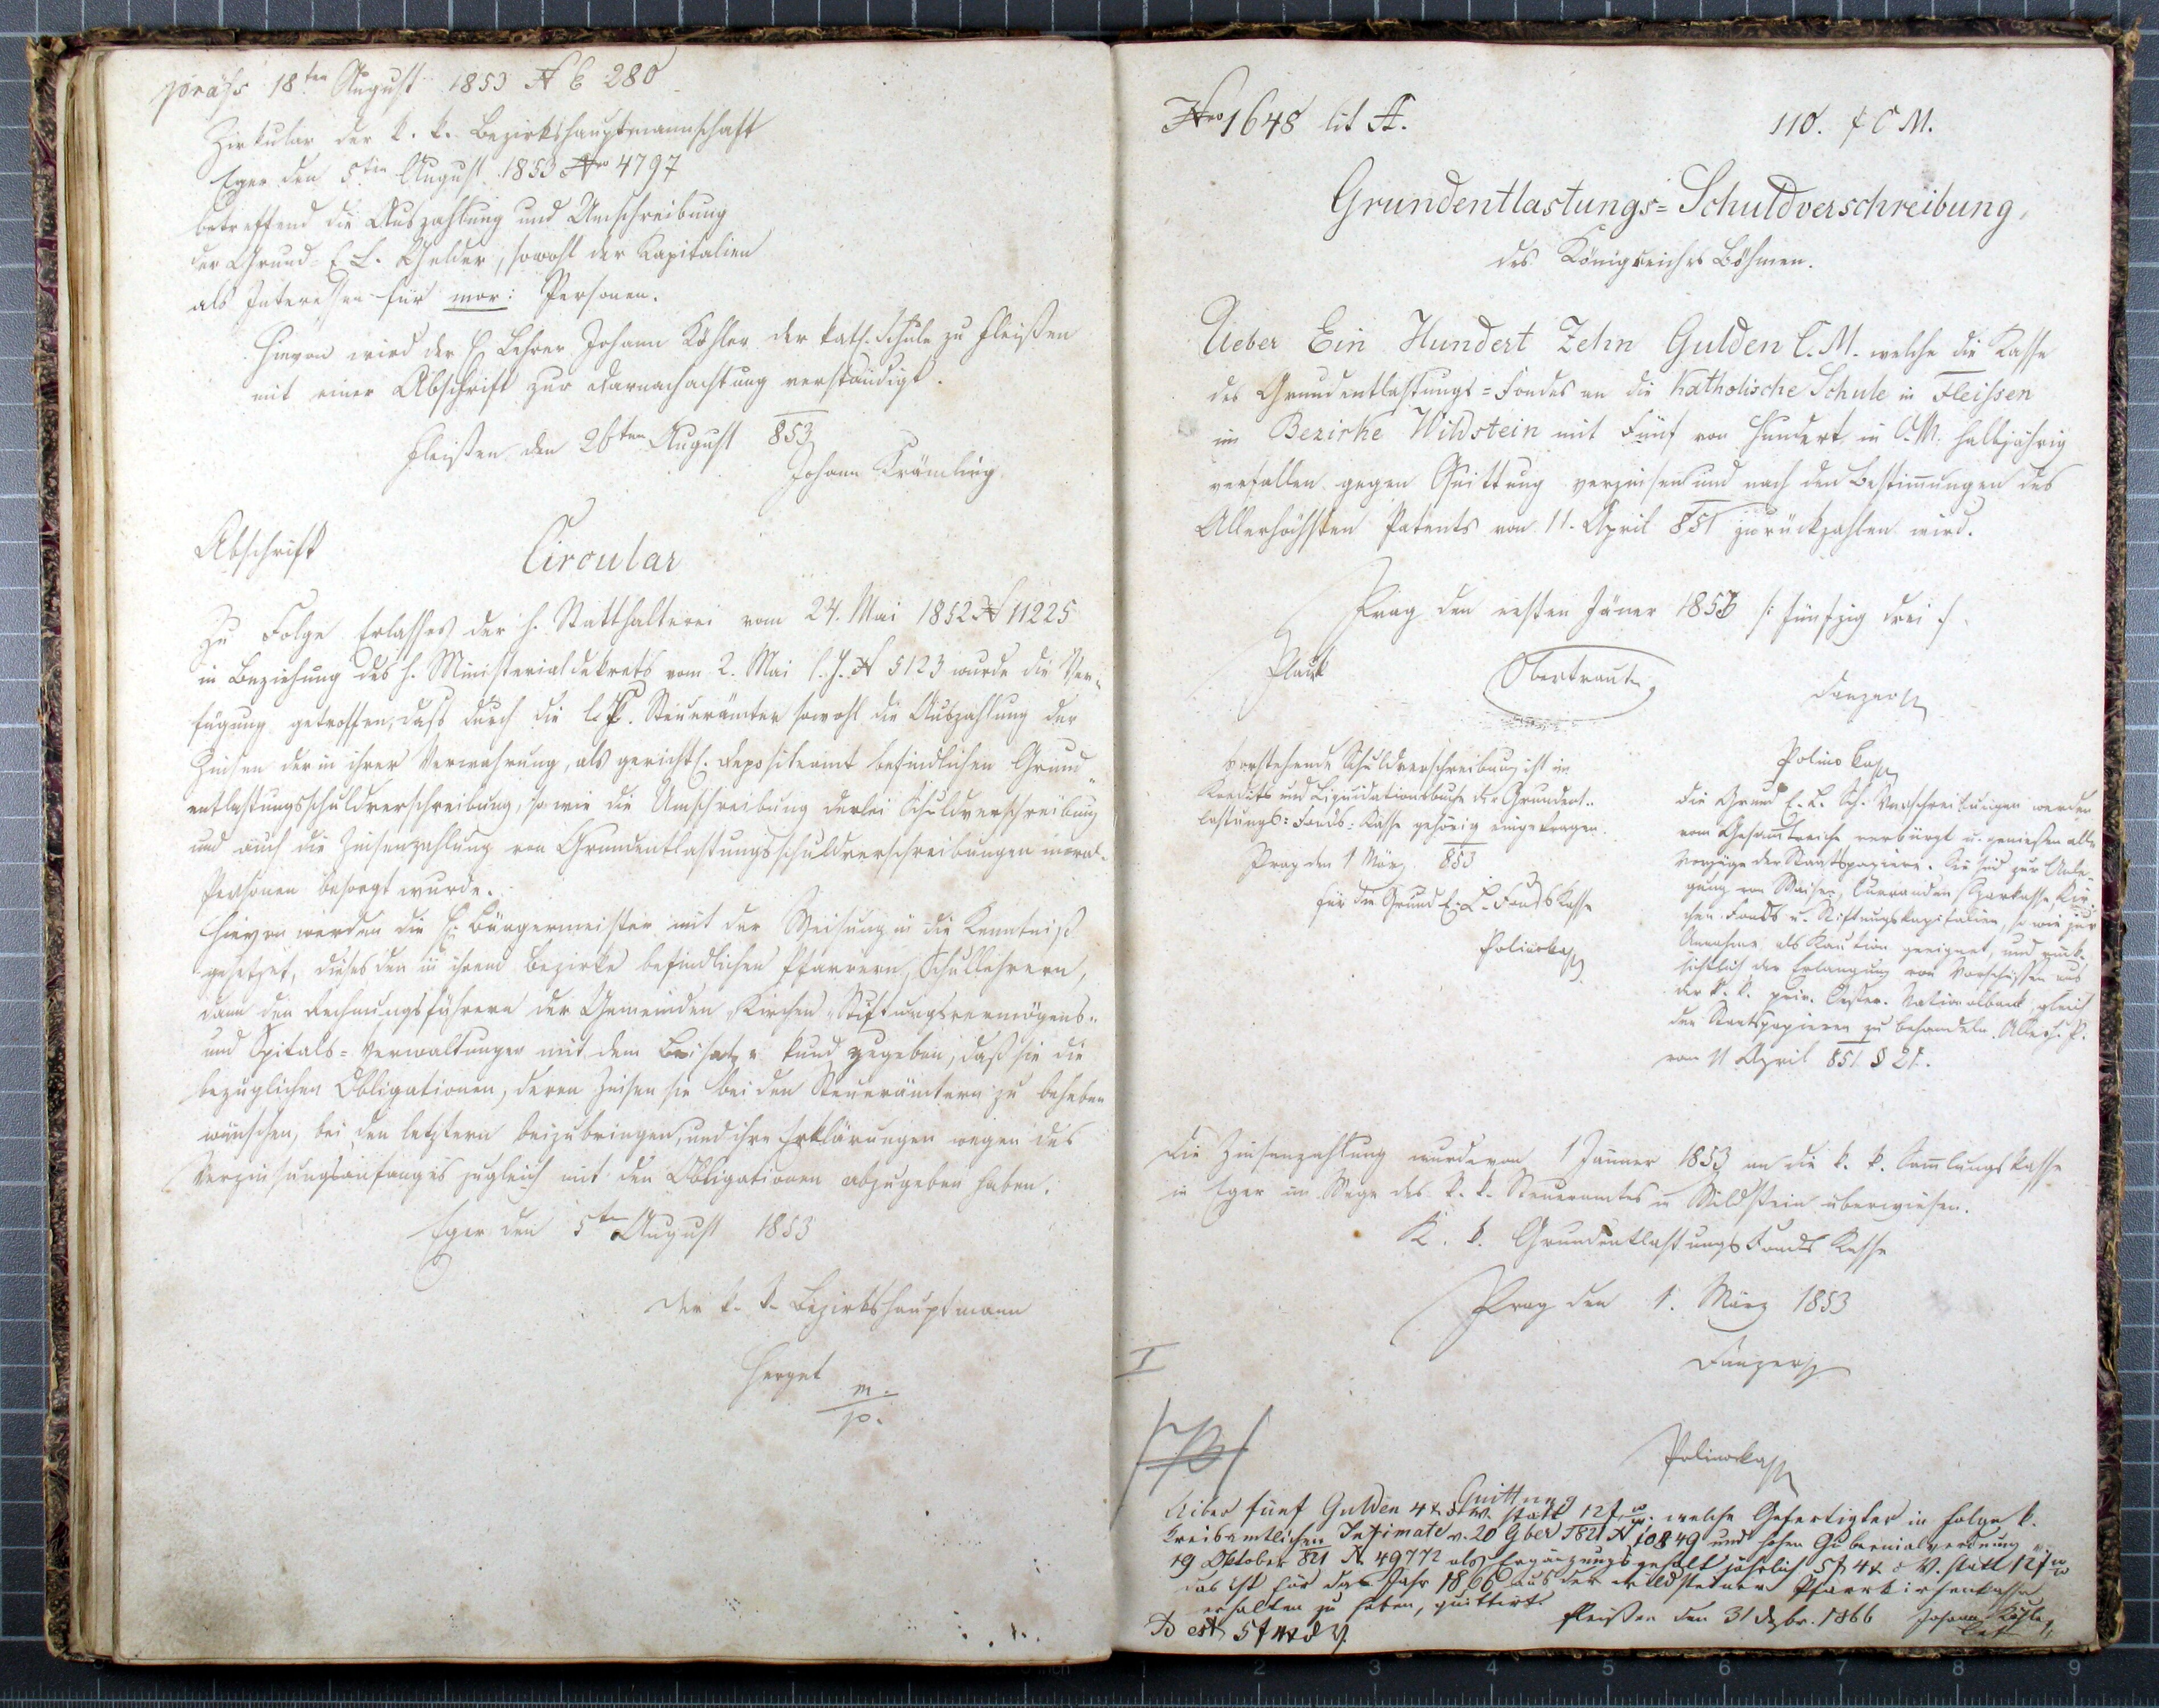 präs 18ten August 1853 N E 280
Zirkular der k. k. Bezirkshauptmannschaft
Eger den 5ten August 1853 Nro 4797
betreffend die Auszahlung und Umschreibung
der Grund=E. L. Gelder, sowohl der Kapitalien
als Interessen für mor: Personen.
Hievon wird der H. Lehrer Johann Köhler der kath. Schule zu Fleißen
mit einer Abschrift zur Darnachachtung verständigt.
Fleißen den 26ten August 853
Johann Krämling
Abschrift
Circular
Zu Folge Erlasses der h. Statthalterei vom 24. Mai 1852 N 11225
in Beziehung des h. Ministerialdekrets vom 2. Mai l. J. N 5123 wurde die Ver-
fügung getroffen, dass durch die k. k. Steuerämter sowohl die Auszahlung der
Zinsen der in ihrer Verwahrung, als gerichtl. Depositenamt befindlichen Grund-
entlastungsschuldverschreibung, so wie die Umschreibung derlei Schuldverschreibung
und auch die Zinsenzahlung von Grundentlastungsschuldverschreibungen moral.
Personen besorgt wurde.
Hievon werden die H: Bürgermeister mit der Weisung in die Kenntniß
gesetzt, dieses den in ihrem Bezirke befindlichen Pfarrern, Schullehrern,
dann den Rechnungsführern der Gemeinden Kirchen Stiftungsvermögens-
und Spitals=Verwaltungen mit dem Beisatze kund zugeben, daß sie die
bezüglichen Obligationen, deren Zinsen sie bei den Steuerämtern zu beheben
wünschen, bei den letztern beizubringen, und ihre Erklärungen wegen des
Verzinsungsanfanges zugleich mit den Obligationen abzugeben haben.
Eger den 5ten August 1853
Der k. k. Bezirkshauptmann
Herget
m.
p.
Nro 1648 lit A. 110. f C M.
Grundentlastungs=Schuldverschreibung,
des Königreichs Böhmen.
Ueber Ein Hundert Zehn Gulden C. M. welche die Kasse
des Grundentlastungs=Fondes an die Katholische Schule in Fleissen
im Bezirke Wildstein mit Fünf von Hundert in C. M. halbjährig
verfallen gegen Quittung verzinsen und nach den Bestimmungen des
Allerhöchsten Patents von 11. April 851 zurückzahlen wird.
Prag den ersten Jäner 1853 /: fünfzig drei :/
Obertraut
Danzer
Vorstehende Schuldverschreibung ist im
Kredits und Liquidationsbuche der Grundent-
lastungs=Fonds=Kasse gehörig eingetragen.
Prag den 1 März 853
für die Grund E. L. Fondskasse
Poliwka
Poliwka
Die Grund E. L. Sch. Verschreibungen werden
vom Gesammtreiche verbürgt u. genießen alle
Vorzüge der Staatspapiere. Sie sind zur Anle-
gung von Waisen, Curanden, Sparkasse, Kir-
chen Fonds u. Stiftungskapitalien, so wie zur
Annahme als Kaution geeignet, und rück-
sichtlich der Erlangung von Vorschüssen aus
der k. k. priv. Oester. Nationalbank, gleich
den Staatspapieren zu behandeln. Allerh. P.
vom 11 April 851 § 21.
Die Zinsenzahlung wurde vom 1 Jänner 1853 an die k. k. Sammlungskasse
in Eger im Wege des k. k. Steueramtes in Wildstein überwiesen.
K. k. Grundentlastungs Fonds Kasse
Prag den 1. März 1853
Danzer
I
Poliwka
Quittung
Uiber fünf Gulden 4 x ö W. statt 12 f welche Gefertigter in Folge k.
Kreisamtlichen Intimats v. 20 9ber 821 N 10849 und hohen Gubernialverordnung v.
19 Oktober 821 N 49772 als Ergänzungsgehalt jährlich 5 f 4 x ö W. statt 12 f
das ist für das Jahr 1866 aus der Wildsteiner Pfarrkirchenkasse
erhalten zu haben, quittirt.
Fleißen den 31 Dzbr. 1866 Johann Köhler
D est 5 f 4 x ö W.